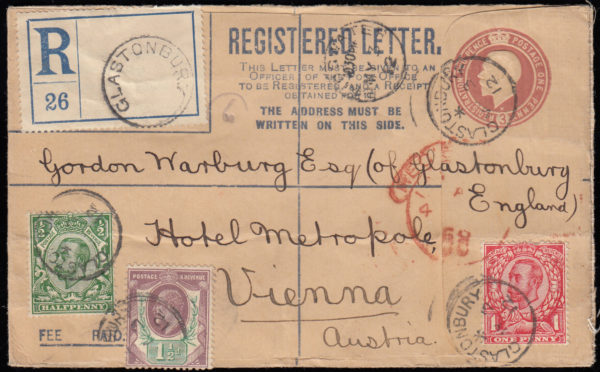 R
26
GLASTONBURY
REGISTERED LETTER.
THIS LETTER MUST BE GIVEN TO AN
OFFICER OF THE POST OFFICE
TO BE REGISTERED, AND A RECEIPT
OBTAINED FOR IT
THE ADDRESS MUST BE
WRITTEN ON THIS SIDE.
GLASTONBURY
Gordon Warburg Esq (of Glastonbury
England)
Hotel Metropole
Vienna
Austria.
HALFPENNY
FEE PAID.
POSTAGE & REVENUE
1½d
ONE PENNY
GLASTONBURY